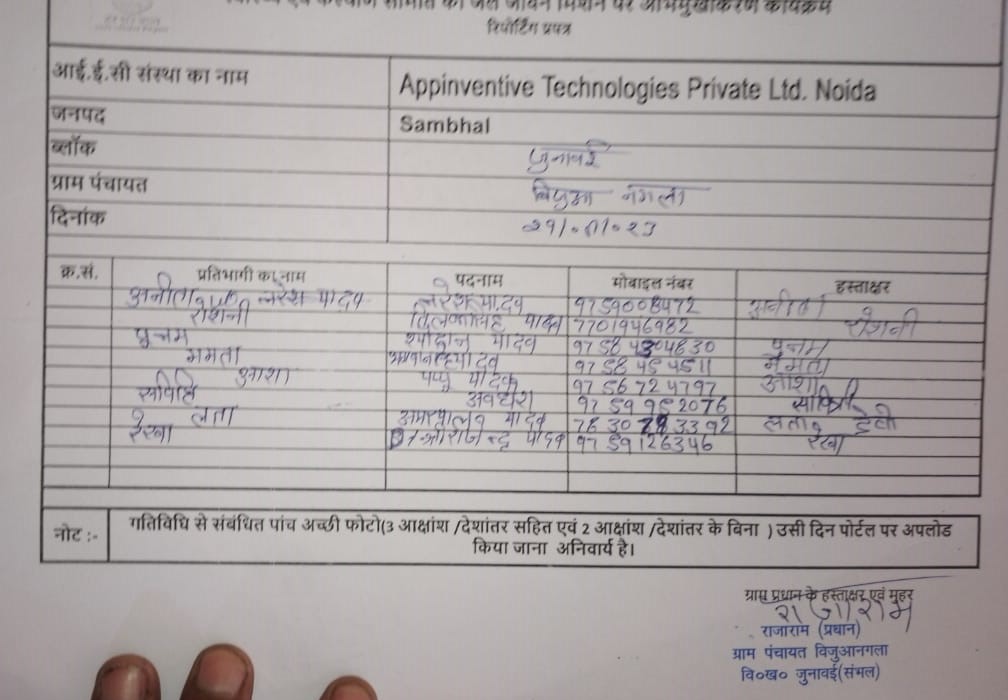 स्वास्थ्य एवं कल्याण समिति का जल जीवन मिशन पर अभिमुखीकरण कार्यक्रम
रिपोर्टिंग प्रपत्र
आई.ई.सी संस्था का नाम Appinventive Technologies Private Ltd. Noida
जनपद Sambhal
ब्लॉक जुनावई
ग्राम पंचायत बिजुआ नगला
दिनांक 29/01/23
क्र.सं. प्रतिभागी का नाम पदनाम मोबाइल नंबर हस्ताक्षर
अनीता नरेश यादव नरेश यादव 9759008472 अनीता
रोशनी यादव 7701946982 रोशनी
पूनम यादव 9758 4304830 पूनम
ममता यादव 97 58 45 4511 ममता
आशा पप्पू यादव 97 56 72 4797 आशा
अवधेश 97 59 95 2076 सावित्री
लता यादव 78 30 78 33 92 लता देवी
रेखा यादव 97 59 126346 रेखा
नोट :- गतिविधि से संबंधित पांच अच्छी फोटो(3 आक्षांश /देशांतर सहित एवं 2 आक्षांश /देशांतर के बिना ) उसी दिन पोर्टल पर अपलोड
किया जाना अनिवार्य है।
ग्राम प्रधान के हस्ताक्षर एवं मुहर
राजाराम
राजाराम (प्रधान)
ग्राम पंचायत विजुआनगला
वि०ख० जुनावई(संभल)